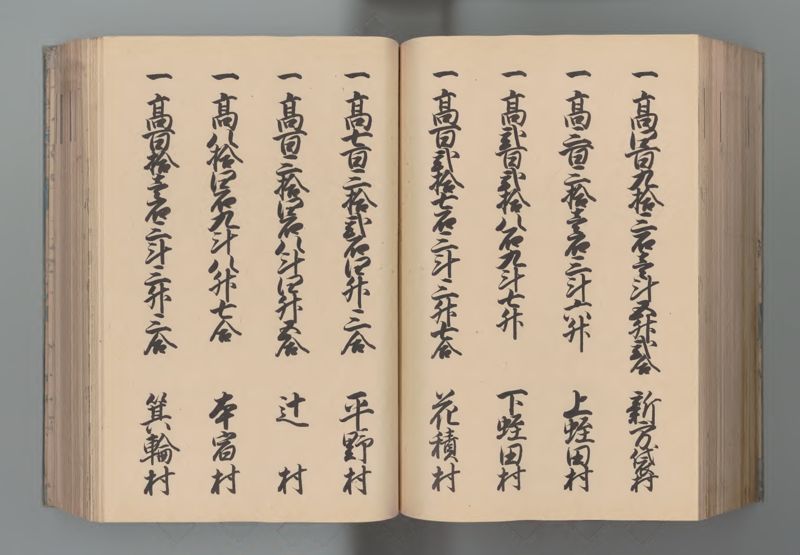 一 髙四百九拾三石壱斗五升弐合 新方袋村
一 髙三百三拾壱石三斗六升 上蛭田村
一 髙弐百弐拾八石九斗七升 下蛭田村
一 髙百弐拾七石三斗三升七合 花積村
一 髙七百三拾弐石四升三合 平野村
一 髙百三拾四石八斗四升五合 辻村
一 髙八拾四石九斗八升七合 本宿村
一 髙百拾壱石三斗三升三合 箕輪村